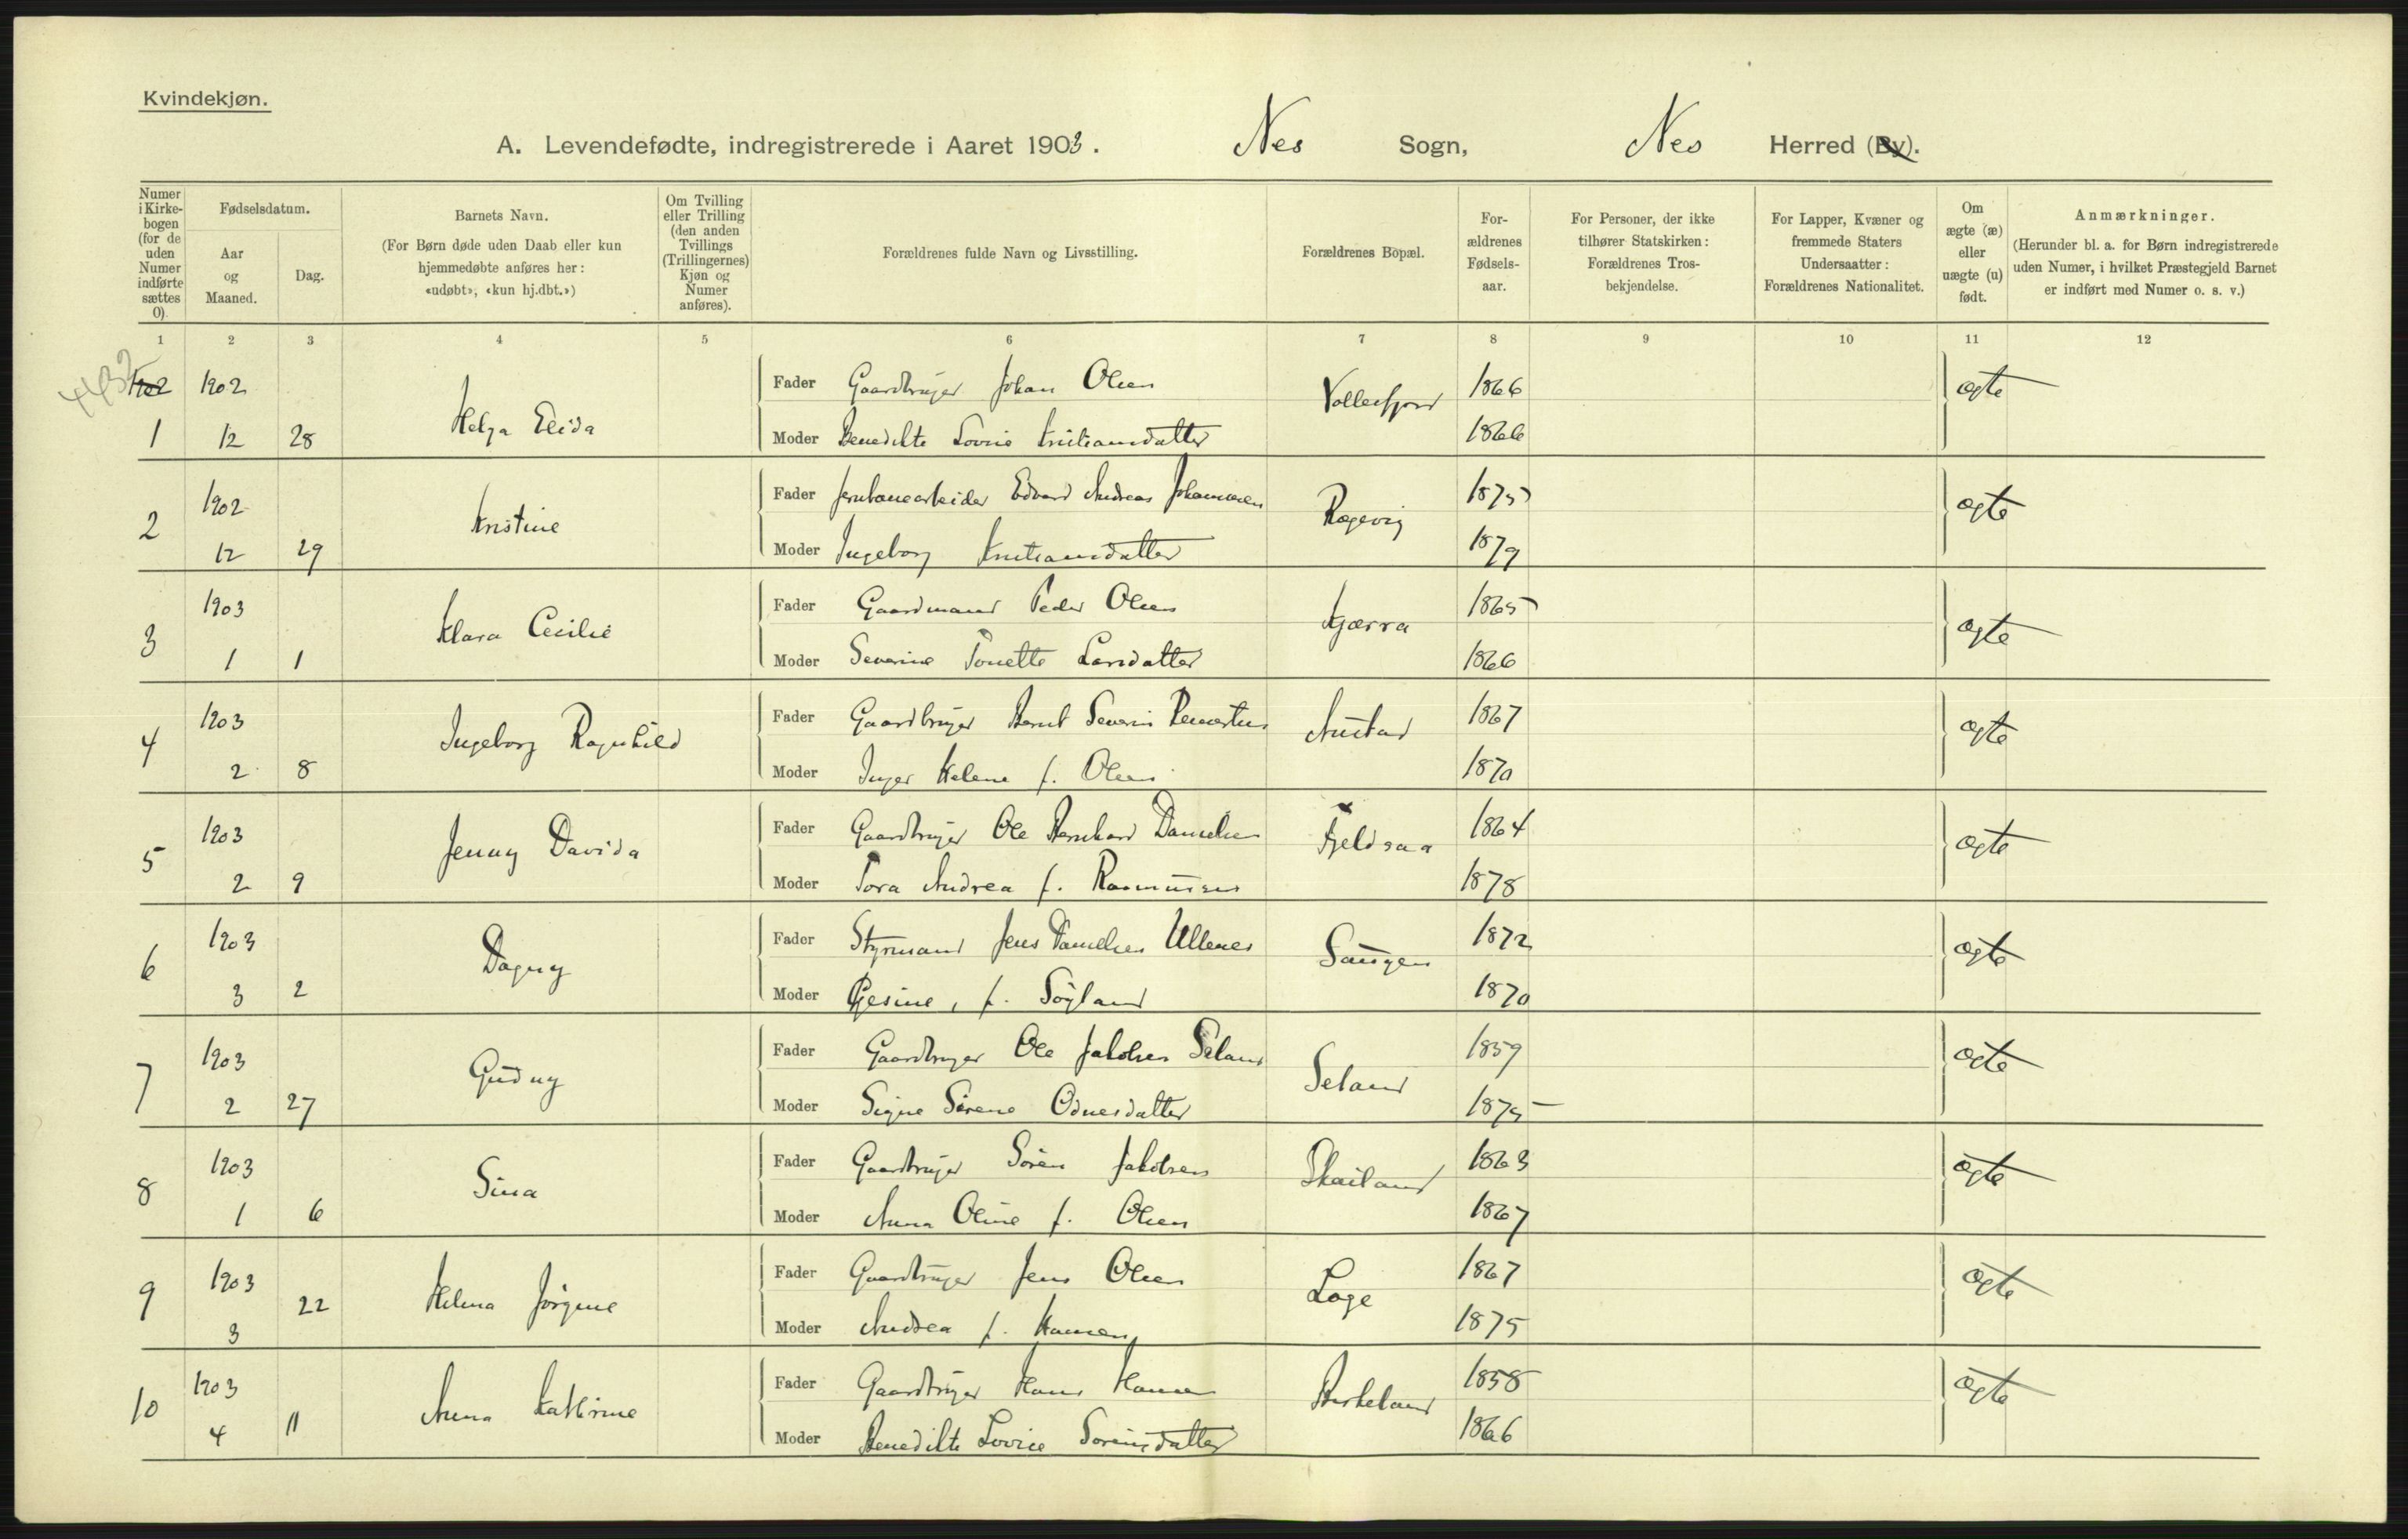 Kvindekjøn.
A. Levendefødte, indregistrerede i Aaret 1903. Nes Sogn, Nes Herred (By).
Numer i Kirkebogen (for de uden Numer indførte sættes 0).
Fødselsdatum.
Aar og Maaned.
Dag.
Barnets Navn.
(For Børn døde uden Daab eller kun hjemmedøbte anføres her: «udøbt», «kun hj.dbt.»)
Om Tvilling eller Trilling (den anden Tvillings (Trillingernes) Kjøn og Numer anføres).
Forældrenes fulde Navn og Livsstilling.
Forældrenes Bopæl.
Forældrenes Fødselsaar.
For Personer, der ikke tilhører Statskirken: Forældrenes Trosbekjendelse.
For Lapper, Kvæner og fremmede Staters Undersaatter: Forældrenes Nationalitet.
Om ægte (æ) eller uægte (u) født.
Anmærkninger.
(Herunder bl. a. for Børn indregistrerede uden Numer, i hvilket Præstegjeld Barnet er indført med Numer o. s. v.)
1 2 3 4 5 6 7 8 9 10 11 12
1902 1902 Fader Gaardbruger Johan Olsen 1866 ægte
1 12 28 Helga Elida Moder Benedikte Lovise Kristiansdatter 1866
1902 Fader Jernbanearbeider Edvard Andreas Johannesen 1875
2 12 29 Kristine Moder Ingeborg Kristiansdatter Rægevig 1879 ægte
1903 Fader Gaardmand Peder Olsen 1865
3 1 1 Klara Cecilie Moder Severine Tonette Larsdatter Kjørra 1866 ægte
1903 Fader Gaardbruger Bernt Severin 1867
4 2 8 Ingeborg Ragnhild Moder Inger Helene f. Olsen Austad 1870 ægte
1903 Fader Gaardbruger Ole Bernhard Danielsen 1864
5 2 9 Jenny Davida Moder Tora Andrea f. Rasmussen Fjeldsaa 1878 ægte
1903 Fader Styrmand Jens Danielsen Ullenes 1872
6 3 2 Dagny Moder Gesine, f. Söyland Sangen 1870 ægte
1903 Fader Gaardbruger Ole Jakobsen Seland 1859
7 2 27 Gudny Moder Signe Sirene Odnesdatter Seland 1875 ægte
1903 Fader Gaardbruger Sören Jakobsen 1863
8 1 6 Sina Moder Anna Oline f. Olsen Skailand 1867 ægte
1903 Fader Gaardbruger Jens Olsen 1867
9 3 22 Helma Jörgine Moder Andrea f. Hansen Loge 1875 ægte
1903 Fader Gaardbruger Hans Hansen 1858
10 4 11 Anna Kathrine Moder Benedikte Lovise Sorensdatter Birkeland 1866 ægte